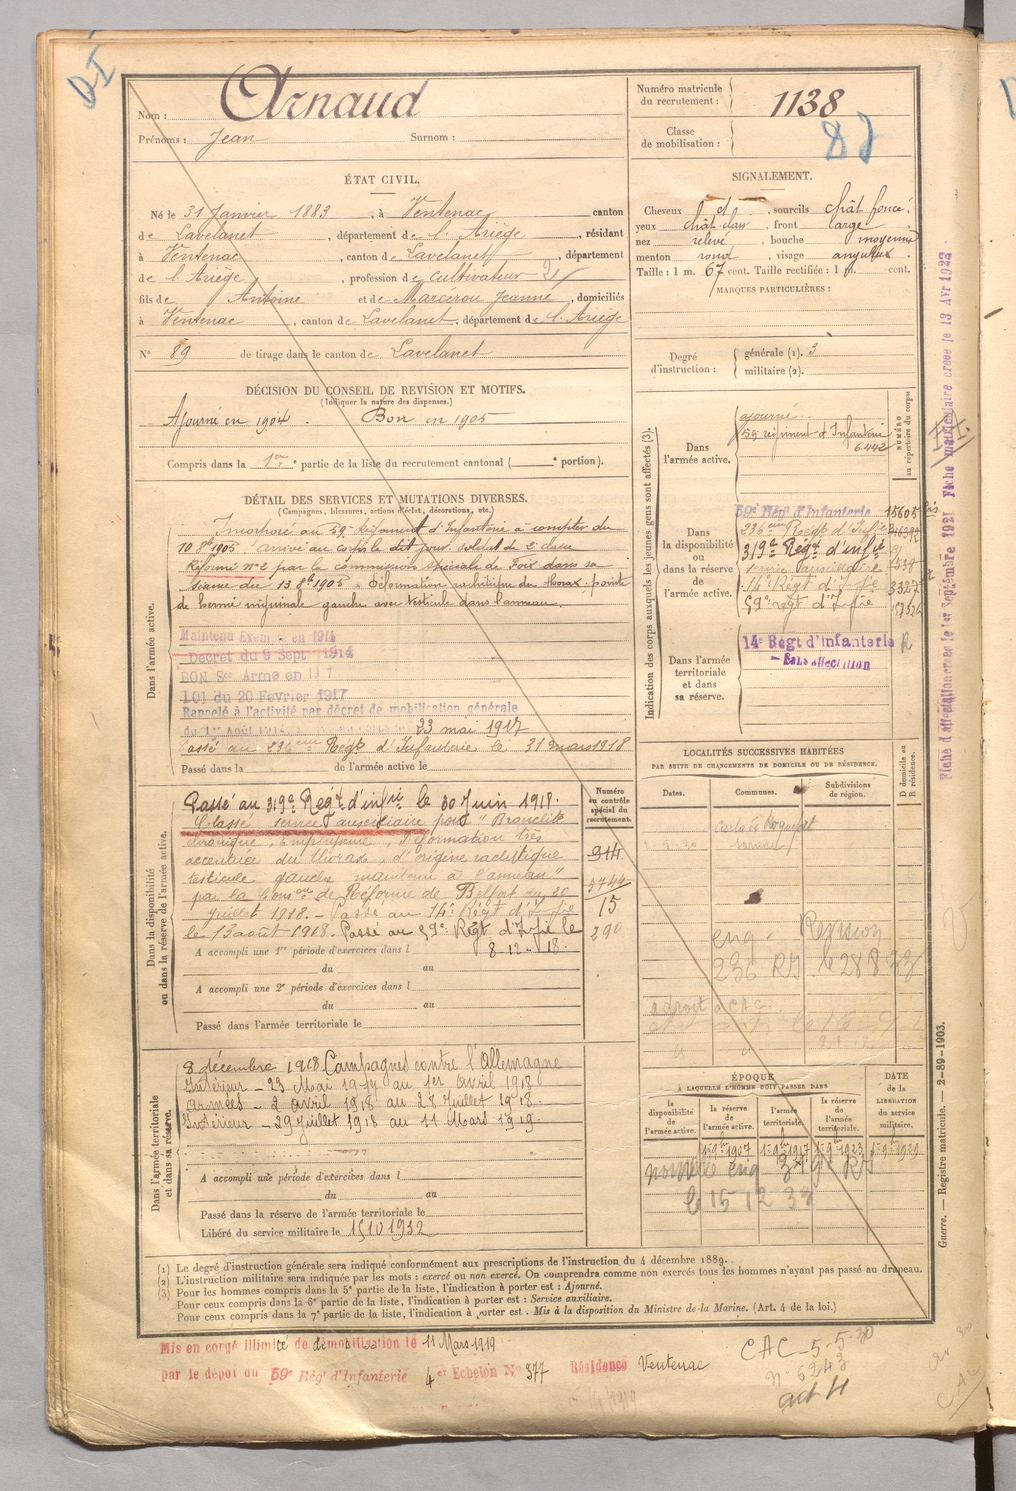 Nom : Arnaud
Prénoms : Jean Surnom :
Numéro matricule du recrutement : 1138
Classe de mobilisation :
ÉTAT CIVIL.
Né le 31 Janvier 1883, à Ventenac canton
de Lavelanet, département de l'Ariège, résidant
à Ventenac, canton de Lavelanet, département
de l'Ariège, profession de cultivateur
fils de Antoine et de Marcérou Jeanne, domiciliés
à Ventenac, canton de Lavelanet, département de l'Ariège
N° 89 de tirage dans le canton de Lavelanet
SIGNALEMENT.
Cheveux sourcils chât foncé.
yeux chât clair, front large
nez relevé, bouche moyenne
menton rond, visage anguleux
Taille : 1 m. 67 cent. Taille rectifiée : 1 m. cent.
MARQUES PARTICULIÈRES :
Degré d'instruction : générale (1). 3
militaire (2).
DÉCISION DU CONSEIL DE REVISION ET MOTIFS.
(Indiquer la nature des dispenses.)
Ajourné en 1904. Bon en 1905
Compris dans la 1re partie de la liste du recrutement cantonal ( e portion).
DÉTAIL DES SERVICES ET MUTATIONS DIVERSES.
(Campagnes, blessures, actions d'éclat, décorations, etc.)
Dans l'armée active.
Incorporé au 59e Régiment d'Infanterie à compter du
10 8bre 1905. arrivé au corps le dit jour soldat de 2e classe
Réformé n° 2 par la commission spéciale de Foix dans sa
séance du 13 8bre 1905 Déformation du thorax, pointe
de hernie inguinale gauche avec testicule dans l'anneau
Maintenu Exempté en 1914
Décret du 9 Sept 1914
BON Sce Armé en 1917
LOI du 20 Février 1917
Rappelé à l'activité par décret de mobilisation générale
du 1er Août 1914 23 mai 1917
Passé au 236eme Régt d'Infanterie le 31 mars 1918
Passé dans la de l'armée active le
Dans la disponibilité ou dans la réserve de l'armée active.
Passé au 319e Régt d'infie le 30 Juin 1918.
Classé service auxiliaire pour "Bronchite
chronique, emphysème, Déformation très
accentuée du thorax, d'origine rachitique
testicule gauche maintenu à l'anneau"
par la Comon de Réforme de Belfort du 20
Juillet 1918. - Passé au 14e Régt d'Infie
le 13 août 1918. Passé au 59e Régt d'Infie le
8-12-18.
A accompli une 1re période d'exercices dans l
du au
A accompli une 2e période d'exercices dans l
du au
Passé dans l'armée territoriale le
Numéro au contrôle spécial du recrutement.
914
3744
15
290
Dans l'armée territoriale et dans sa réserve.
8 décembre 1918 Campagnes contre l'Allemagne
Intérieur - 23 Mai 1917 au 1er Avril 1918
Armées - 2 avril 1918 au 28 Juillet 1918.
Intérieur - 29 Juillet 1918 au 11 Mars 1919.
A accompli une période d'exercices dans l
du au
Passé dans la réserve de l'armée territoriale le
Libéré du service militaire le 15 10 1932
Indication des corps auxquels les jeunes gens sont affectés (3).
NUMÉRO au répertoire du corps
Dans l'armée active.
ajourné.
59 régiment d'Infanterie
6442
Dans la disponibilité ou dans la réserve de l'armée active.
59e Régt d'Infanterie 15605 bis
236eme Régt d'Infie
319e Régt d'infie
service auxiliaire
14e Régt d'Infie
59e régt d'Infie
Dans l'armée territoriale et dans sa réserve.
14e Régt d'infanterie R
- Sans affectation
LOCALITÉS SUCCESSIVES HABITÉES
PAR SUITE DE CHANGEMENTS DE DOMICILE OU DE RÉSIDENCE.
D domicile ou R résidence.
Dates. Communes. Subdivisions de région.
enq. Revision
236 RI
ÉPOQUE
À LAQUELLE L'HOMME DOIT PASSER DANS
DATE de la LIBÉRATION du service militaire.
la disponibilité de l'armée active. la réserve de l'armée active. l'armée territoriale. la réserve de l'armée territoriale.
1er 9bre 1907 1er 9bre 1917 1er 9bre 1923 1er 9bre 1929
(1) Le degré d'instruction générale sera indiqué conformément aux prescriptions de l'instruction du 4 décembre 1889.
(2) L'instruction militaire sera indiquée par les mots : exercé ou non exercé. On comprendra comme non exercés tous les hommes n'ayant pas passé au drapeau.
(3) Pour les hommes compris dans la 5e partie de la liste, l'indication à porter est : Ajourné.
Pour ceux compris dans la 6e partie de la liste, l'indication à porter est : Service auxiliaire.
Pour ceux compris dans la 7e partie de la liste, l'indication à porter est : Mis à la disposition du Ministre de la Marine. (Art. 4 de la loi.)
Mis en congé illimité de démobilisation le 11 Mars 1919
par le dépôt du 59e Régt d'Infanterie 4er Echelon N° 377 Résidence Ventenac
CAC-5-5-30
n° 6243
art 4
Fiche d'affectation créée le 1er Septembre 1921 Fiche matriculaire créée le 13 Avr 1922.
Guerre. — Registre matricule. — 2-89-1903.